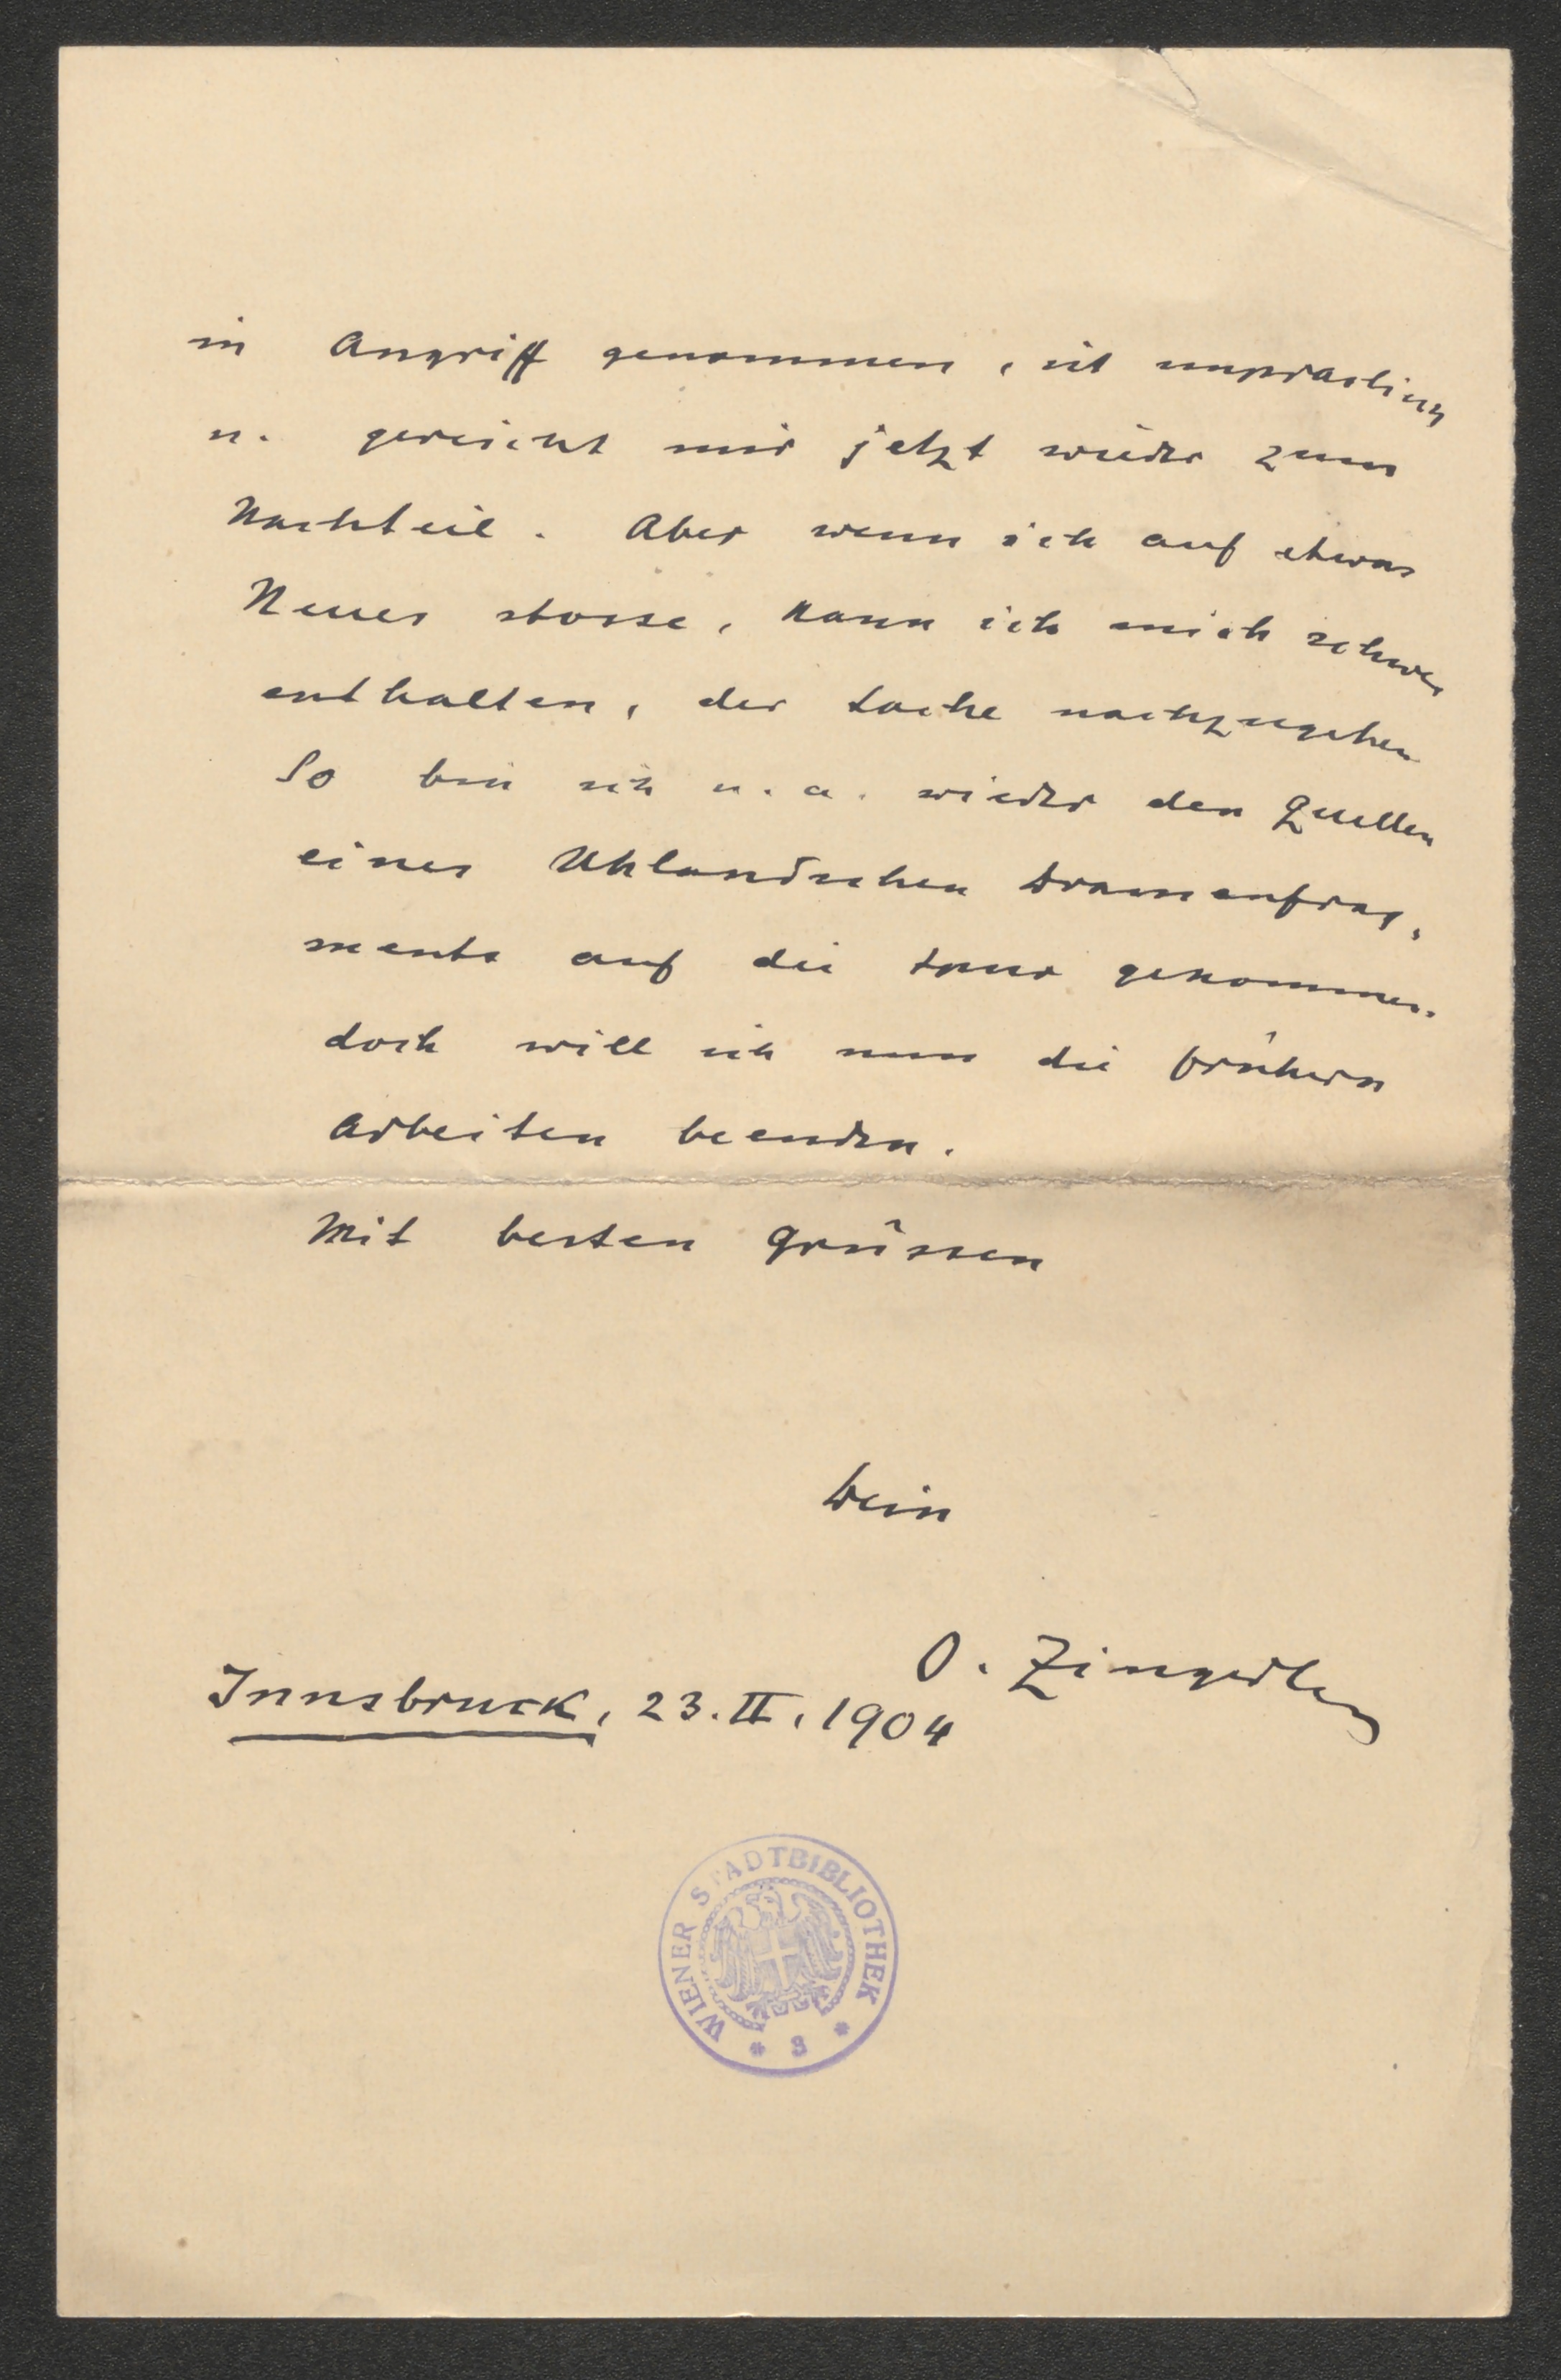 in Angriff genommen, ist unpractisch
u. gereicht mir jetzt wieder zum
Nachteil. Aber wenn ich auf etwas
Neues stosse, kann ich mich schwer
enthalten, der Sache nachzugehen
So bin ich u. a. wieder den Quellen
eines Uhlandschen Dramenfrag-
ments auf die Spur gekommen.
doch will ich nun die frühern
Arbeiten beenden.
Mit besten Grüssen
Dein
O. Zingerle
Innsbruck, 23. II. 1904
WIENER STADTBIBLIOTHEK
* 3 *